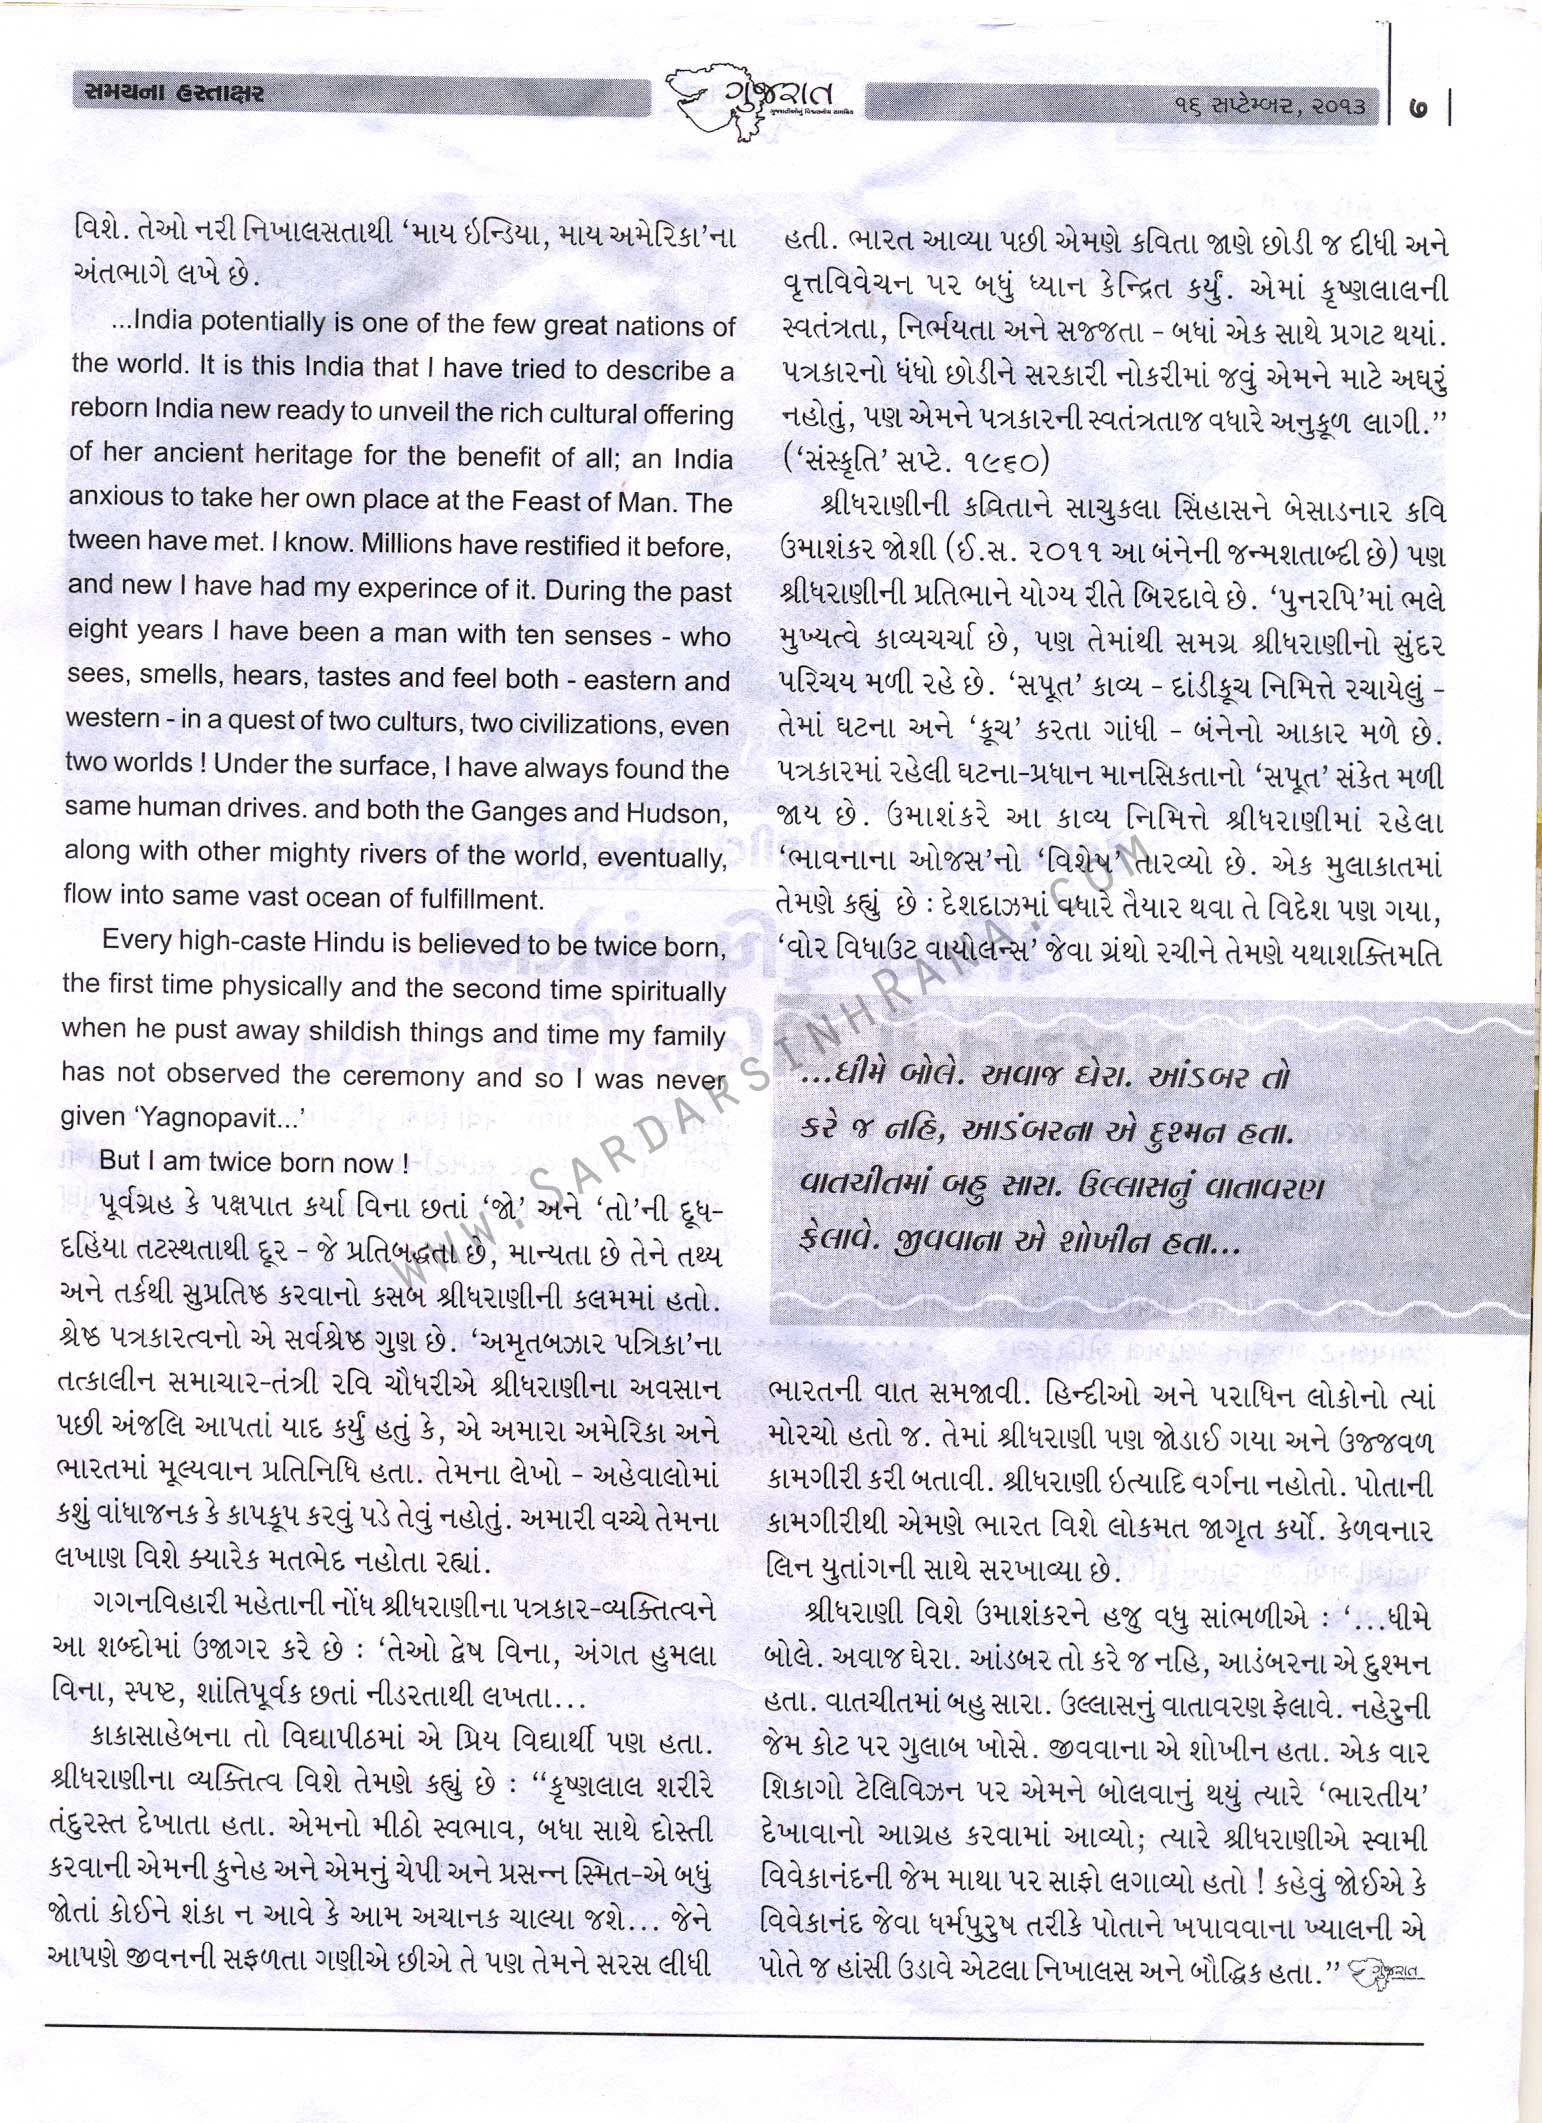 સમયના હસ્તાક્ષર
ગુજરાત
૧૬ સપ્ટેમ્બર, ૨૦૧૩
૭
વિશે. તેઓ નરી નિખાલસતાથી ‘માય ઇન્ડિયા, માય અમેરિકા’ના
અંતભાગે લખે છે.
...India potentially is one of the few great nations of
the world. It is this India that I have tried to describe a
reborn India new ready to unveil the rich cultural offering
of her ancient heritage for the benefit of all; an India
anxious to take her own place at the Feast of Man. The
tween have met. I know. Millions have restified it before,
and new I have had my experince of it. During the past
eight years I have been a man with ten senses - who
sees, smells, hears, tastes and feel both - eastern and
western - in a quest of two culturs, two civilizations, even
two worlds ! Under the surface, I have always found the
same human drives. and both the Ganges and Hudson,
along with other mighty rivers of the world, eventually,
flow into same vast ocean of fulfillment.
Every high-caste Hindu is believed to be twice born,
the first time physically and the second time spiritually
when he pust away shildish things and time my family
has not observed the ceremony and so I was never
given ‘Yagnopavit...’
But I am twice born now !
પૂર્વગ્રહ કે પક્ષપાત કર્યા વિના છતાં ‘જો’ અને ‘તો’ની દૂધ-
દહિંયા તટસ્થતાથી દૂર - જે પ્રતિબદ્ધતા છે, માન્યતા છે તેને તથ્ય
અને તર્કથી સુપ્રતિષ્ઠ કરવાનો કસબ શ્રીધરાણીની કલમમાં હતો.
શ્રેષ્ઠ પત્રકારત્વનો એ સર્વશ્રેષ્ઠ ગુણ છે. ‘અમૃતબઝાર પત્રિકા’ના
તત્કાલીન સમાચાર-તંત્રી રવિ ચૌધરીએ શ્રીધરાણીના અવસાન
પછી અંજલિ આપતાં યાદ કર્યું હતું કે, એ અમારા અમેરિકા અને
ભારતમાં મૂલ્યવાન પ્રતિનિધિ હતા. તેમના લેખો - અહેવાલોમાં
કશું વાંધાજનક કે કાપકૂપ કરવું પડે તેવું નહોતું. અમારી વચ્ચે તેમના
લખાણ વિશે ક્યારેક મતભેદ નહોતા રહ્યાં.
ગગનવિહારી મહેતાની નોંધ શ્રીધરાણીના પત્રકાર-વ્યક્તિત્વને
આ શબ્દોમાં ઉજાગર કરે છે : ‘તેઓ દ્વેષ વિના, અંગત હુમલા
વિના, સ્પષ્ટ, શાંતિપૂર્વક છતાં નીડરતાથી લખતા...
કાકાસાહેબના તો વિદ્યાપીઠમાં એ પ્રિય વિદ્યાર્થી પણ હતા.
શ્રીધરાણીના વ્યક્તિત્વ વિશે તેમણે કહ્યું છે : “કૃષ્ણલાલ શરીરે
તંદુરસ્ત દેખાતા હતા. એમનો મીઠો સ્વભાવ, બધા સાથે દોસ્તી
કરવાની એમની કુનેહ અને એમનું ચેપી અને પ્રસન્ન સ્મિત-એ બધું
જોતાં કોઈને શંકા ન આવે કે આમ અચાનક ચાલ્યા જશે... જેને
આપણે જીવનની સફળતા ગણીએ છીએ તે પણ તેમને સરસ લીધી
હતી. ભારત આવ્યા પછી એમણે કવિતા જાણે છોડી જ દીધી અને
વૃત્તવિવેચન પર બધું ધ્યાન કેન્દ્રિત કર્યું. એમાં કૃષ્ણલાલની
સ્વતંત્રતા, નિર્ભયતા અને સજ્જતા - બધાં એક સાથે પ્રગટ થયાં.
પત્રકારનો ધંધો છોડીને સરકારી નોકરીમાં જવું એમને માટે અઘરું
નહોતું, પણ એમને પત્રકારની સ્વતંત્રતાજ વધારે અનુકૂળ લાગી.”
(‘સંસ્કૃતિ’ સપ્ટે. ૧૯૬૦)
શ્રીધરાણીની કવિતાને સાચુકલા સિંહાસને બેસાડનાર કવિ
ઉમાશંકર જોશી (ઈ.સ. ૨૦૧૧ આ બંનેની જન્મશતાબ્દી છે) પણ
શ્રીધરાણીની પ્રતિભાને યોગ્ય રીતે બિરદાવે છે. ‘પુનરપિ’માં ભલે
મુખ્યત્વે કાવ્યચર્ચા છે, પણ તેમાંથી સમગ્ર શ્રીધરાણીનો સુંદર
પરિચય મળી રહે છે. ‘સપૂત’ કાવ્ય - દાંડીકૂચ નિમિત્તે રચાયેલું -
તેમાં ઘટના અને ‘કૂચ’ કરતા ગાંધી - બંનેનો આકાર મળે છે.
પત્રકારમાં રહેલી ઘટના-પ્રધાન માનસિકતાનો ‘સપૂત’ સંકેત મળી
જાય છે. ઉમાશંકરે આ કાવ્ય નિમિત્તે શ્રીધરાણીમાં રહેલા
‘ભાવનાના ઓજસ’નો ‘વિશેષ’ તારવ્યો છે. એક મુલાકાતમાં
તેમણે કહ્યું છે : દેશદાઝમાં વધારે તૈયાર થવા તે વિદેશ પણ ગયા,
‘વોર વિધાઉટ વાયોલન્સ’ જેવા ગ્રંથો રચીને તેમણે યથાશક્તિમતિ
...ધીમે બોલે. અવાજ ઘેરા. આંડબર તો
કરે જ નહિ, આડંબરના એ દુશ્મન હતા.
વાતચીતમાં બહુ સારા. ઉલ્લાસનું વાતાવરણ
ફેલાવે. જીવવાના એ શોખીન હતા...
ભારતની વાત સમજાવી. હિન્દીઓ અને પરાધિન લોકોનો ત્યાં
મોરચો હતો જ. તેમાં શ્રીધરાણી પણ જોડાઈ ગયા અને ઉજ્જવળ
કામગીરી કરી બતાવી. શ્રીધરાણી ઇત્યાદિ વર્ગના નહોતો. પોતાની
કામગીરીથી એમણે ભારત વિશે લોકમત જાગૃત કર્યો. કેળવનાર
લિન યુતાંગની સાથે સરખાવ્યા છે.
શ્રીધરાણી વિશે ઉમાશંકરને હજુ વધુ સાંભળીએ : ‘...ધીમે
બોલે. અવાજ ઘેરા. આંડબર તો કરે જ નહિ, આડંબરના એ દુશ્મન
હતા. વાતચીતમાં બહુ સારા. ઉલ્લાસનું વાતાવરણ ફેલાવે. નહેરુની
જેમ કોટ પર ગુલાબ ખોસે. જીવવાના એ શોખીન હતા. એક વાર
શિકાગો ટેલિવિઝન પર એમને બોલવાનું થયું ત્યારે ‘ભારતીય’
દેખાવાનો આગ્રહ કરવામાં આવ્યો; ત્યારે શ્રીધરાણીએ સ્વામી
વિવેકાનંદની જેમ માથા પર સાફો લગાવ્યો હતો ! કહેવું જોઈએ કે
વિવેકાનંદ જેવા ધર્મપુરુષ તરીકે પોતાને ખપાવવાના ખ્યાલની એ
પોતે જ હાંસી ઉડાવે એટલા નિખાલસ અને બૌદ્ધિક હતા.” ગુજરાત
WWW.SARDARSINHRANA.COM